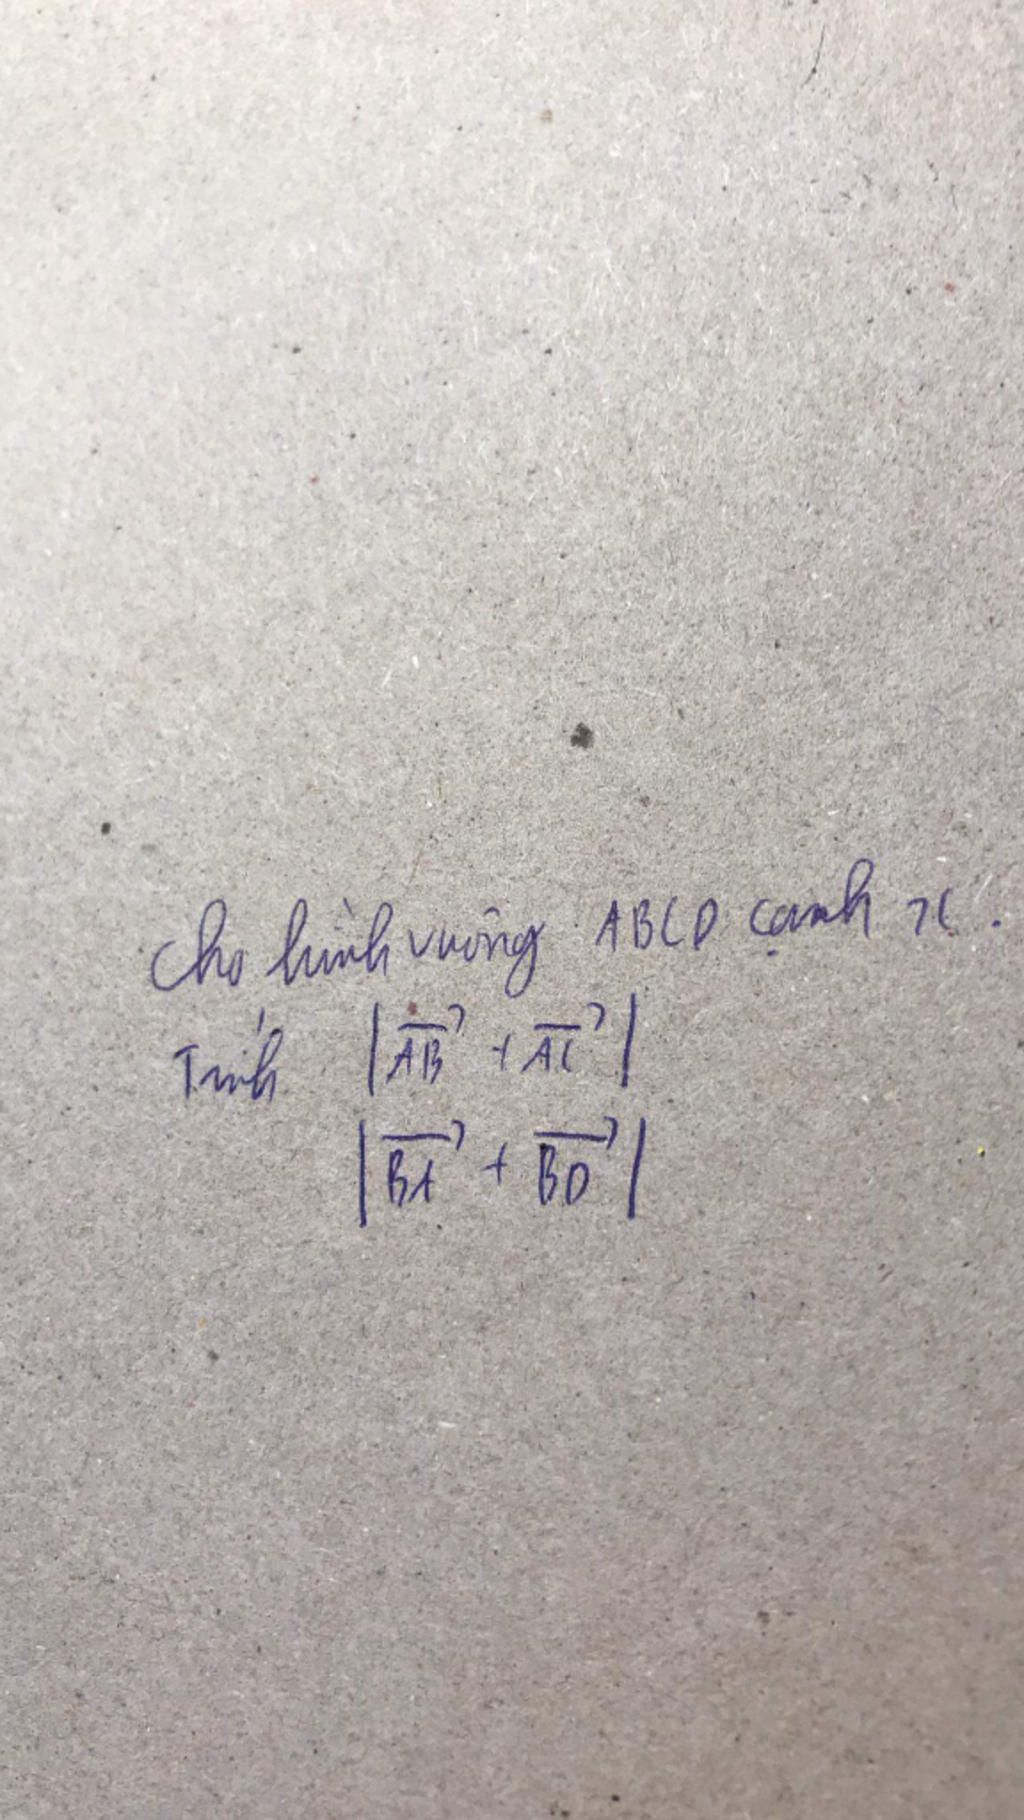 Cho hình vuông ABCD cạnh x.
Tính |$\overrightarrow{AB}$ + $\overrightarrow{AC}$|
|$\overrightarrow{BA}$ + $\overrightarrow{BD}$|